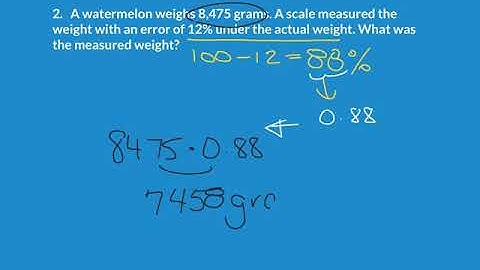 2. A watermelon weighs 8,475 grams. A scale measured the
weight with an error of 12% under the actual weight. What was
the measured weight?
100-12=88%
0.88
8475·0.88
7458grc